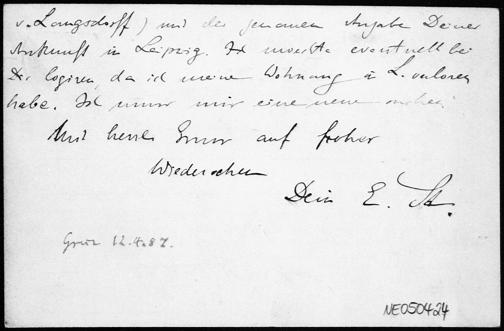 v. Langsdorff) und der genauen Angabe Deiner
Ankunft in Leipzig. Ich moechte eventuell bei
Dir logiren, da ich meine Wohnung in L. verloren
habe. Ich muss mir eine neue suchen.
Mit herzl. Gruss auf frohes
Wiedersehen
Dein E. St.
12.4.87.
NE050424